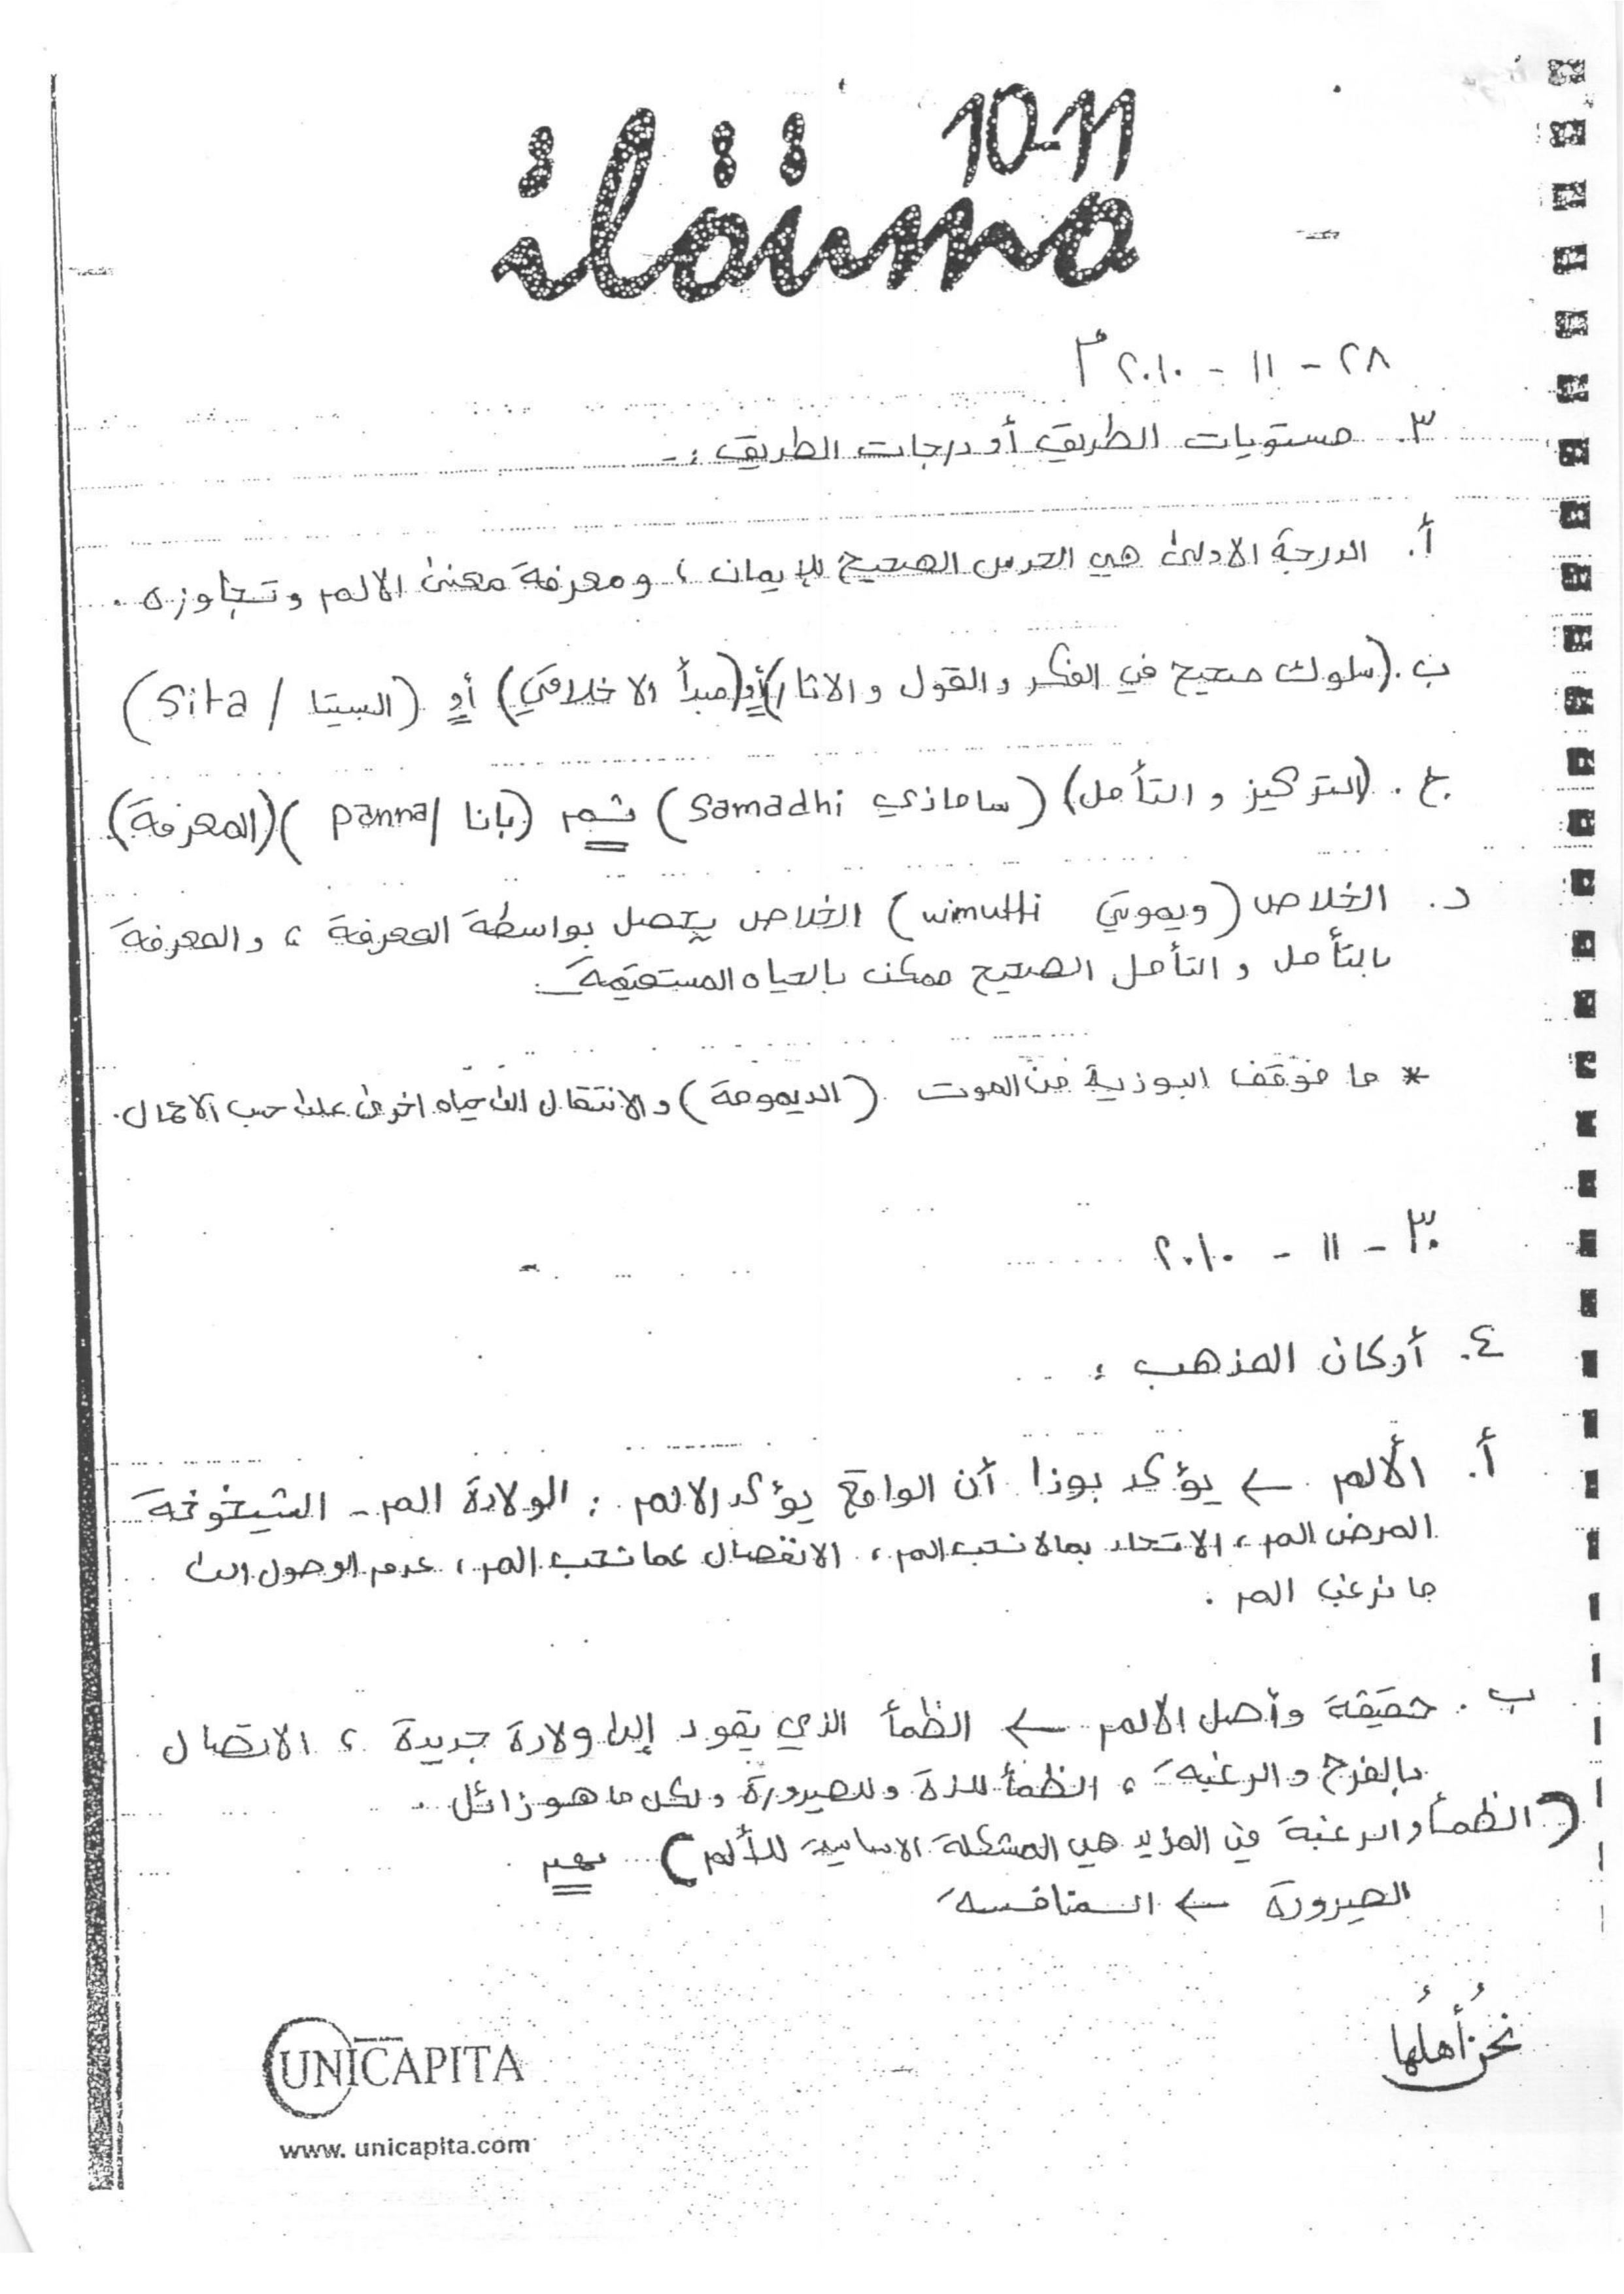 10-11
٢٨ - ١١ - ٢٠١٠ م
٣. مستويات الطريق أو درجات الطريق :-
أ. الدرجة الاولى هي الحدس الصحيح للإيمان ، ومعرفة معنى الالم وتجاوزه .
ب. (سلوك صحيح في الفكر والقول والاثار) أو (مبدأ الاخلاقي) أو (السيتا / Sita)
ج. (التركيز والتأمل) (ساماذي Samadhi) ثم (بانا / panna) (المعرفة)
د. الخلاص (ويموتي wimutti) الخلاص يحصل بواسطة المعرفة ، والمعرفة
بالتأمل والتأمل الصحيح ممكن بالحياه المستقيمة .
* ما موقف البوذية من الموت (الديمومة) والانتقال الى حياه اخرى على حسب الاعمال .
٣٠ - ١١ - ٢٠١٠
٤. أركان المذهب :
أ. الألم ← يؤكد بوذا أن الواقع يؤكد الالم : الولادة الم - الشيخوخة
المرض الم ، الاتحاد بما لا نحب الم ، الانفصال عما نحب الم ، عدم الوصول الى
ما نرغب الم .
ب. حقيقة وأصل الالم ← الظمأ الذي يقود إلى ولادة جديدة ، الاتصال
بالفرح والرغبة ، الظمأ للذة وللصيرورة ولكل ما هو زائل .
(الظمأ والرغبة في المزيد هي المشكلة الاساسية للألم) مهم
الصيرورة ← المنافسة
نحن أهلها
UNICAPITA
www. unicapita.com